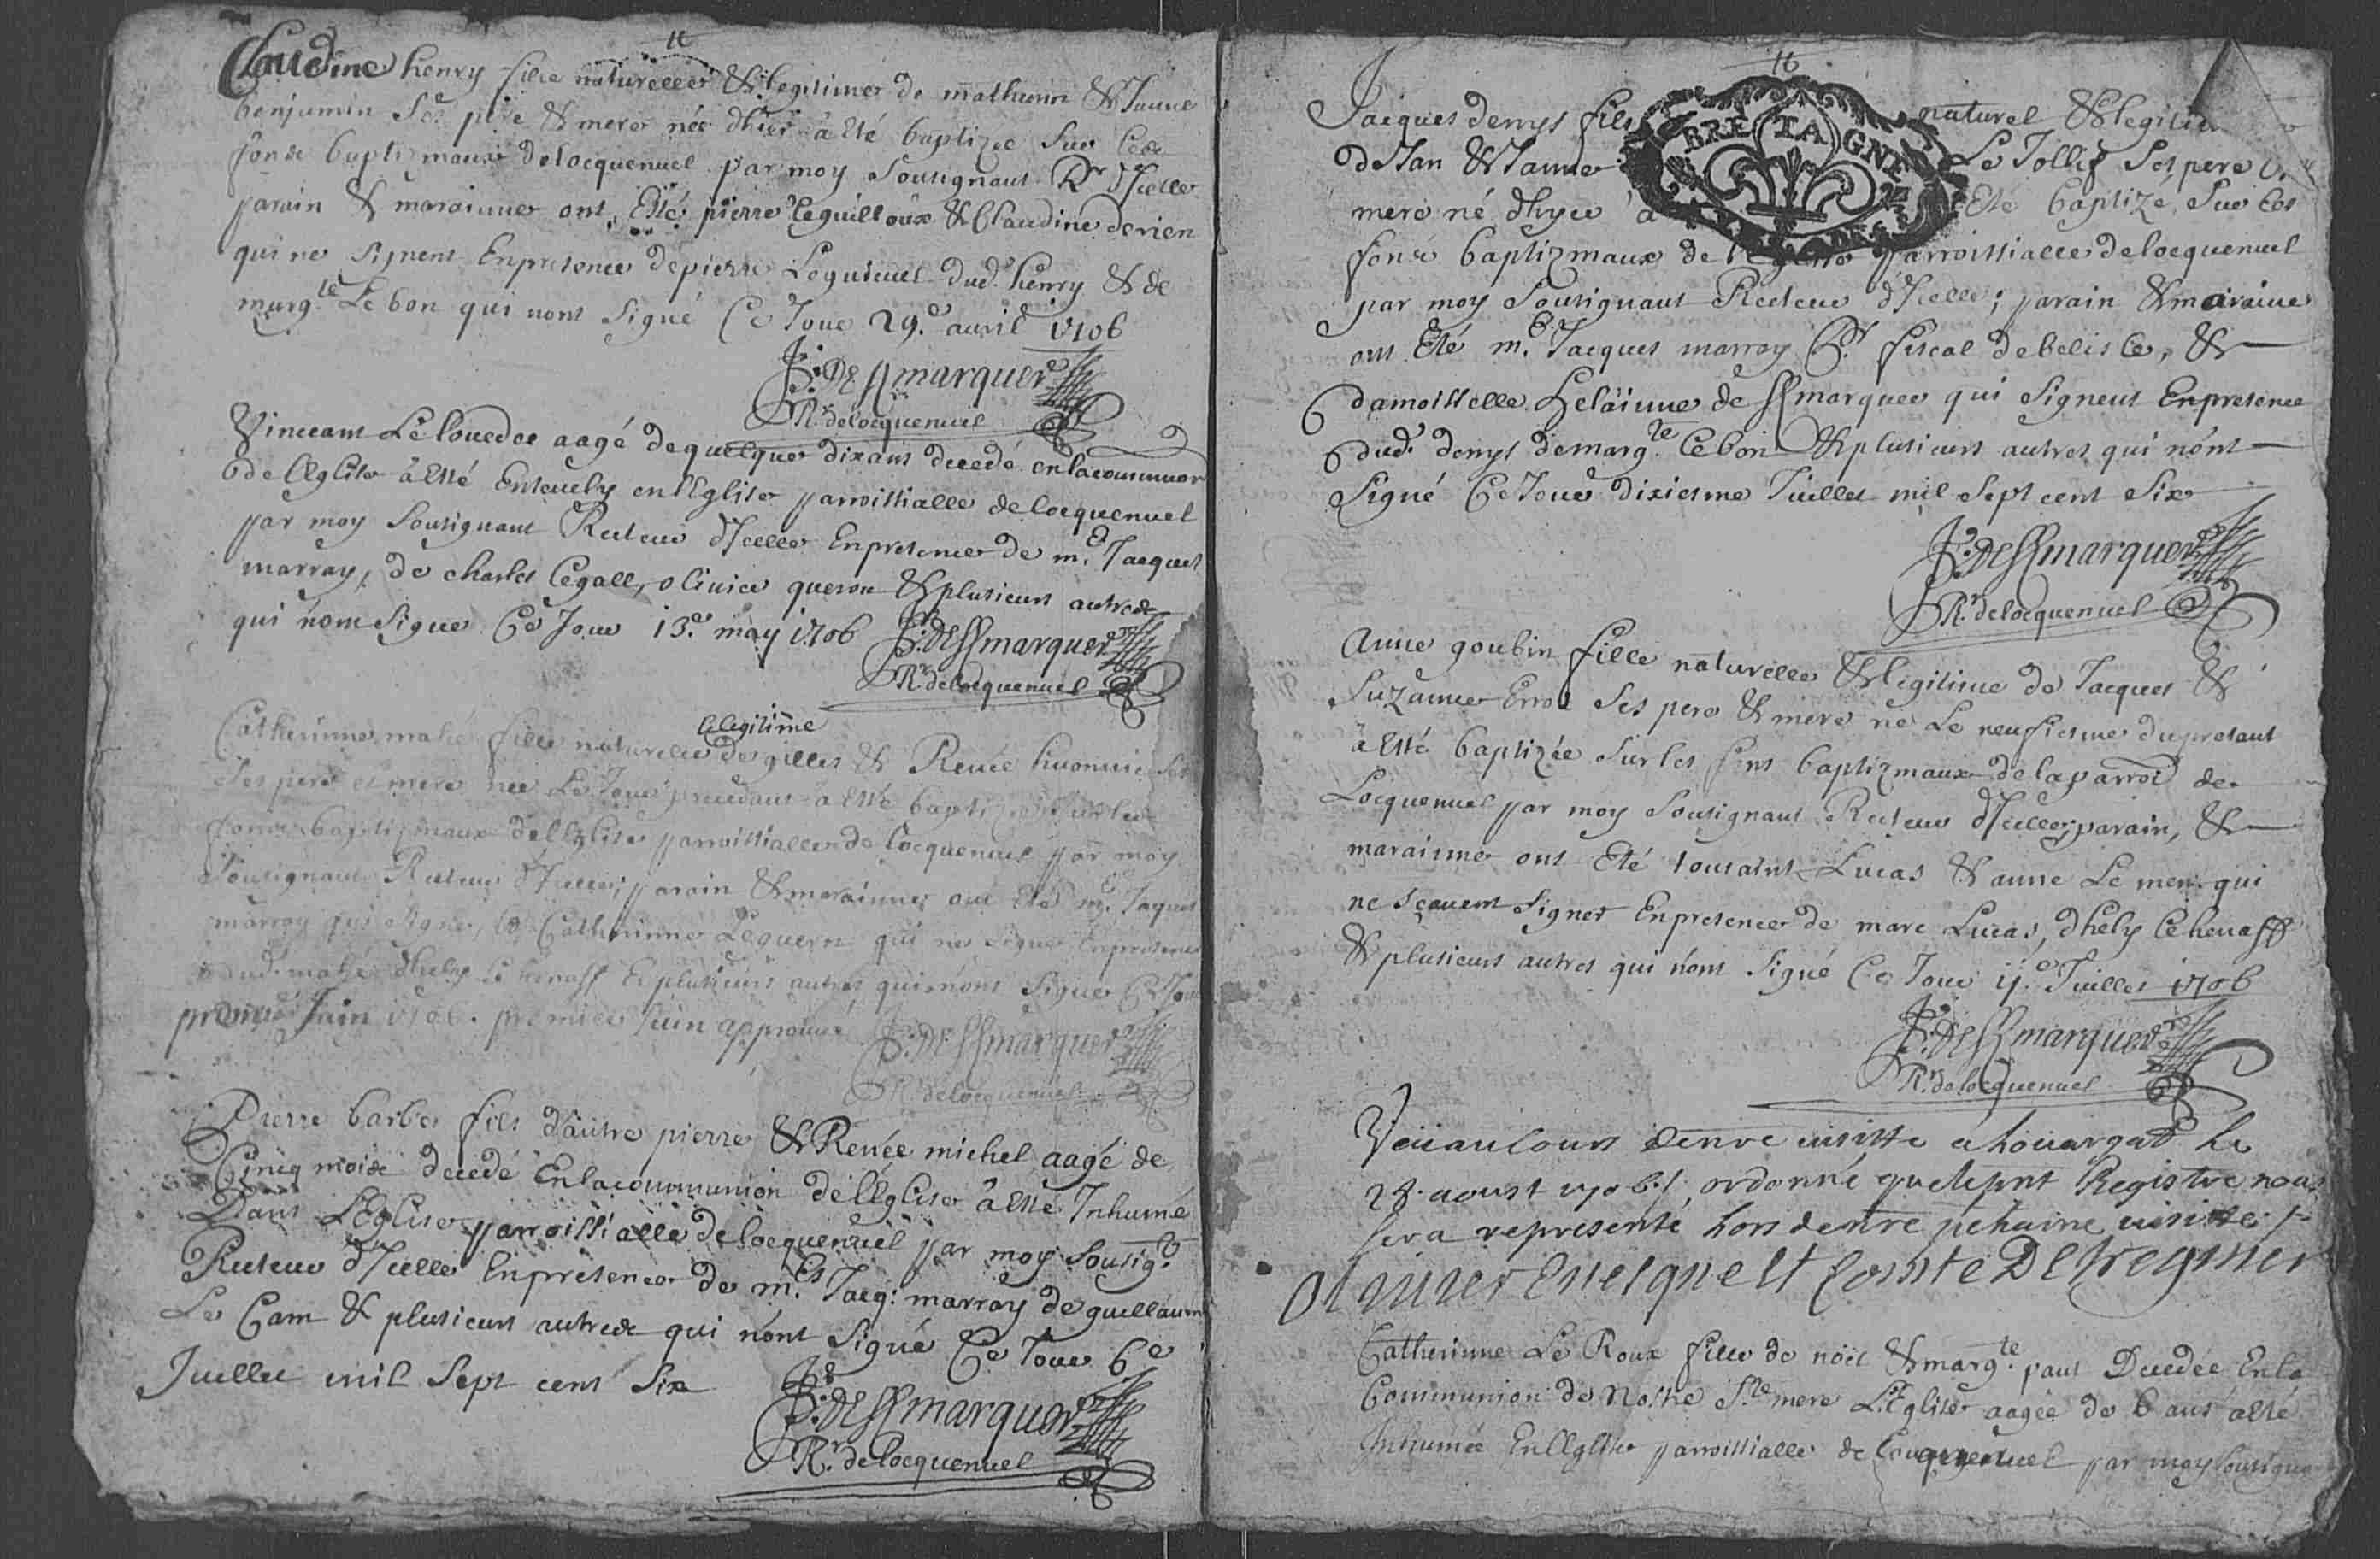 Claudine henry fille naturelle & legitime de mathurin & Janne
benjamin Ses pere & mere née dhier à Eté baptizée Sur les
fonds baptizmaux de locquenuel par moy Sousignant Rr d'Icelle
parain & marainne ont Esté pierre leguilloux & Claudine derien
qui ne Signent En presence de pierre Leguluel dud. henry & de
marg.te Le bon qui n'ont Signé Ce Jour 29.e auril 1706
F: DE KKmarquer
Rr. de locquenuel
Vinceant Le louedec aagé de quelque dix ans decedé en la communion
de l'Eglise à Esté Enseuely en l'Eglise parroissialle de locquenuel
par moy Sousignant Recteur d'Icelle En presence de m.e Jacques
marray, de charles Legall, oliuier queron & plusieurs autrede
qui n'ont Signe Ce Jour 13.e may 1706
F: DE KKmarquer
Rr. de locquenuel
& legitime
Catherinne mahé fille naturelle de gilles & Renée
Ses pere et mere née Le Jour precedant à Esté baptizée Sur les
fonds baptizmaux de l'Eglise parroissialle de locquenuel par moy
Sousignant Recteur d'Icelle; parain & marainne ont Eté m.e Jaques
marray qui Signe, & Catherinne Leguern qui ne Signe En presence
dud. mahé d'hely Le henaff & plusieurs autres qui n'ont Signé Ce Jour
premier Juin 1706. premier Juin approuué
F: DE KKmarquer
Rr. de locquenuel
Pierre barbe fils d'autre pierre & Renée michel aagé de
Cincq moide decedé En la communion de l'Eglise à Esté Inhumé
Dans L'Eglise parroissialle de locquenuel par moy Sousig.t
Recteur d'Icelle En presence de m.es Jacq: marray de guillaume
Le Cam & plusieurs autrede qui n'ont Signé Ce Jour 6e
Juillet mil Sept cent Six
F: DE KKmarquer
Rr. de locquenuel
16
BRETAGNE
Jacques denys fils naturel & legitime
de Jan & Janne Le Jollif Ses pere &
mere né dhyer a Eté baptizé Sur les
fonds baptizmaux de l'Eglise parroissialle de locquenuel
par moy Sousignant Recteur d'Icelle; parain & maraine
ont Eté m.e Jacques marray Pr. fiscal de belisle, &
damoisselle Helainne de KKmarquer qui Signent En presence
dud. denys de marg.te Le bon & plusieurs autres qui n'ont
Signé Ce Jour dixiesme Juillet mil Sept cent Six
F: DE KKmarquer
Rr. de locquenuel
Anne goubin fille naturelle & legitime de Jacques &
Suzanne Ses pere & mere né Le neufiesme du presant
à Esté baptizée Sur les fons baptizmaux de la parroi de
Locquenuel par moy Sousignant Recteur d'Icelle; parain, &
marainne ont Eté toutaint Lucas & anne Le men qui
ne sçauent Signer En presence de marc Lucas, d'hely Le henaff
& plusieurs autres qui n'ont Signé Ce Jour 11.e Juillet 1706
F: DE KKmarquer
Rr. de locquenuel
Veu au cours de nre uisitte a houargat le
28 aoust 1706 ordonné que le pnt Registre nous
sera representé lors de nre pchaine uisitte
oliuier Euesque et Comte De treguier
Catherinne Le Roux fille de noel & marg.te paul Decedée En la
Communion de Nostre S.te mere L'Eglise aagée de 6 ans à Esté
Inhumée En l'Eglise parroissialle de locquenuel par moy sousignant